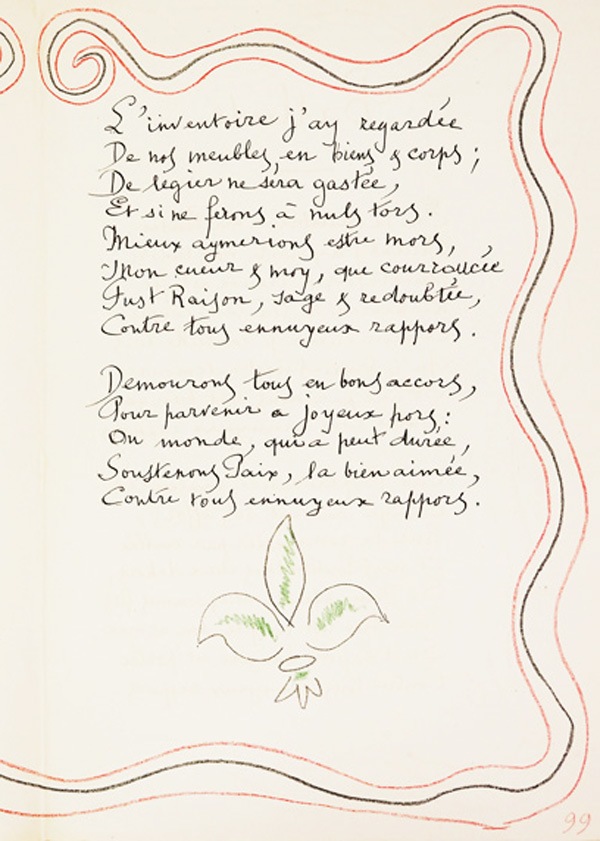 L'inventoire j'ay regardée
De nos meubles, en biens & corps ;
De legier ne sera gastée,
Et si ne ferons à nuls tors.
Mieux aymerions estre mors,
Mon cueur & moy, que courroucée
Fust Raison, sage & redoubtée,
Contre tous ennuyeux rappors.
Demourons tous en bons accors,
Pour parvenir a joyeux pors :
On monde, qui a peut durée,
Soustenons Paix, la bien aimée,
Contre tous ennuyeux rappors.
99